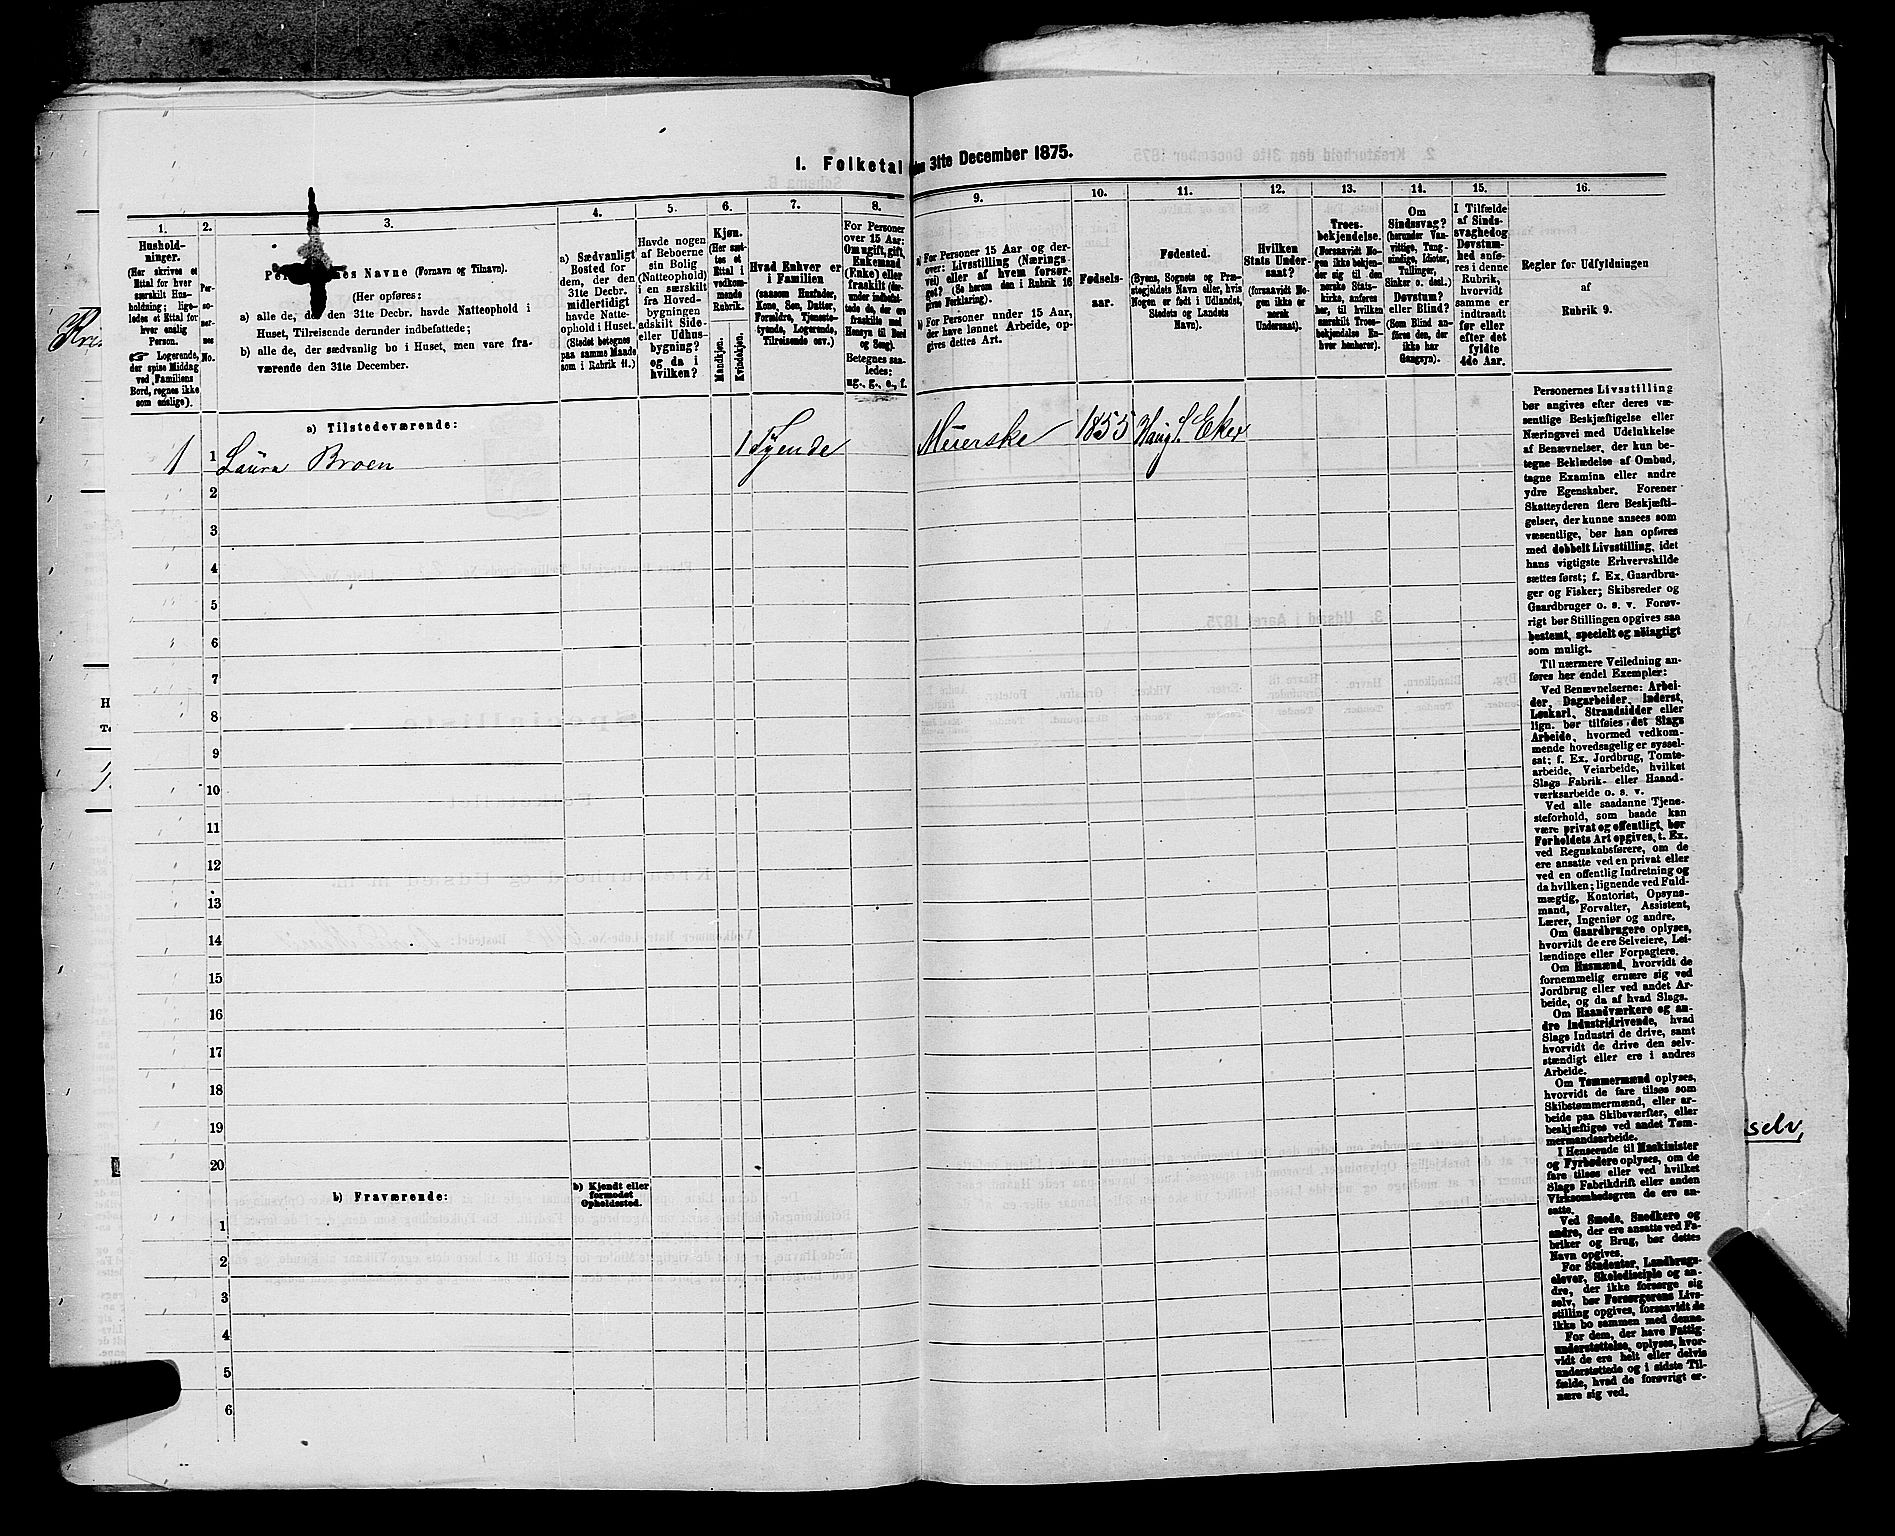 1. Folketal den 31te December 1875.
1.
Hushold-
ninger.
(Her skrives et
Ettal for hver
særskilt Hus-
holdning; lige-
ledes et Ettal for
hver enslig
Person.
☞ Logerende,
der spise Middag
ved Familiens
Bord, regnes ikke
som enslige).
2.
Per-
so-
ner-
nes
No.
3.
Navne (Fornavn og Tilnavn).
(Her opføres:
a) alle de, den 31te Decbr. havde Natteophold i
Huset, Tilreisende derunder indbefattede;
b) alle de, der sædvanlig bo i Huset, men vare fra-
værende den 31te December.
4.
a) Sædvanligt
Bosted for
dem, der den
31te Decbr.
midlertidigt
havde Natte-
ophold i Huset.
(Stedet betegnes
paa samme Maade
som i Rubrik 11.)
5.
Havde nogen
af Beboerne
sin Bolig
(Natteophold)
i en særskilt
fra Hoved-
bygningen
adskilt Side-
eller Udhus-
bygning?
og da i
hvilken?
6.
Kjøn.
(Her sæt-
tes et
Ettal i
vedkom-
mende
Rubrik.
Mandkjøn.
Kvindekjøn.
7.
Hvad Enhver er
i Familien
(saasom Husfader,
Kone, Søn, Datter,
Forældre, Tjeneste-
tyende, Logerende,
Tilreisende osv.)
8.
For Personer
over 15 Aar:
Om ugift, gift,
Enkemand
(Enke) eller
fraskilt
Betegnes saa-
ledes:
ug., g., e., f.
9.
a) For Personer 15 Aar og der-
over: Livsstilling (Nærings-
vei) eller af hvem forsør-
get? (Se herom den i Rubrik 16
givne Forklaring).
b) For Personer under 15 Aar,
der have lønnet Arbeide, op-
gives dettes Art.
10.
Fødsels-
aar.
11.
Fødested.
(Byens, Sognets og Præ-
stegjeldets Navn eller, hvis
Nogen er født i Udlandet,
Stedets og Landets
Navn).
12.
Hvilken
Stats Under-
saat?
(forsaavidt No-
gen ikke er
norsk
Undersaat).
13.
Troes-
bekjendelse.
(Forsaavidt No-
gen ikke bekjen-
der sig til den
norske Stats-
kirke, anføres
her, til hvilken
særskilt Troes-
bekjendelse En-
hver henhører).
14.
Om
Sindssvag?
(herunder Van-
vittige, Tung-
sindige, Idioter,
Tullinger,
Sinker o. desl.)
Døvstum?
eller Blind?
(Som Blind an-
føres den, der
ikke har
Gangsyn).
15.
I Tilfælde
af Sinds-
svaghed og
Døvstum-
hed anfø-
res i denne
Rubrik,
hvorvidt
samme er
indtraadt
før eller
efter det
fyldte
4de Aar.
16.
Regler for Udfyldningen
af
Rubrik 9.
a) Tilstedeværende:
1 1 Laura Broen 1 Tyende Meierske 1855 Haug S. Eker
2
3
4
5
6
7
8
9
10
11
12
13
14
15
16
17
18
19
20
b) Fraværende:
b) Kjendt eller
formodet
Opholdssted.
1
2
3
4
5
6
Personernes Livsstilling
bør angives efter deres væ-
sentlige Beskjæftigelse eller
Næringsvei med Udelukkelse
af Benævnelser, der kun be-
tegne Beklædelse af Ombud,
tagne Examina eller andre
ydre Egenskaber. Forener
Skatteyderen flere Beskjæfti-
gelser, der kunne ansees som
væsentlige, bør han opføres
med dobbelt Livsstilling, idet
hans vigtigste Erhvervskilde
sættes først; f. Ex. Gaardbru-
ger og Fisker; Skibsreder og
Gaardbruger o. s. v. Forøv-
rigt bør Stillingen opgives saa
bestemt, specielt og nøiagtigt
som muligt.
Til nærmere Veiledning an-
føres her endel Exempler:
Ved Benævnelserne: Arbei-
der, Dagarbeider, Inderst,
Løskarl, Strandsidder eller
lign. bør tilføies det Slags
Arbeide, hvormed vedkom-
mende hovedsagelig er syssel-
sat; f. Ex. Jordbrug, Tomte-
arbeide, Veiarbeide, hvilket
Slags Fabrik- eller Haand-
værksarbeide o. s. v.
Ved alle saadanne Tjene-
steforhold, som baade kan
være privat og offentligt, bør
Forholdets Art opgives, t. Ex.
ved Regnskabsførere, om de
ere ansatte ved en privat eller
ved en offentlig Indretning og
da hvilken; lignende ved Fuld-
mægtig, Kontorist, Opsyns-
mand, Forvalter, Assistent,
Lærer, Ingeniør og andre.
Om Gaardbrugere oplyses,
hvorvidt de ere Selveiere, Lei-
lændinge eller Forpagtere.
Om Husmænd, hvorvidt de
fornemmelig ernære sig ved
Jordbrug eller ved andet Ar-
beide, og da af hvad Slags.
Om Haandværkere og an-
dre Industridrivende, hvad
Slags Industri de drive, samt
hvorvidt de drive den selv-
stændigt eller ere i andres
Arbeide.
Om Tømmermænd oplyses,
hvorvidt de fare tilsøs som
Skibstømmermænd, eller ar-
beide paa Skibsværfter, eller
beskjæftiges ved andet Tøm-
mermandsarbeide.
I Henseende til Maskinister
og Fyrbødere oplyses, om de
fare tilsøs eller ved hvilket
Slags Fabrikdrift eller anden
Virksomhedsgren de ere an-
satte.
Ved Smede, Snedkere og
andre, der ere ansatte ved Fa-
briker og Brug, bør dettes
Navn opgives.
For Studenter, Landbrugs-
elever, Skoledisciple og an-
dre, der ikke forsørge sig
selv, bør Forsørgerens Livs-
stilling opgives, forsaavidt de
ikke bo sammen med denne.
For dem, der have Fattig-
understøttelse, oplyses, hvor-
vidt de ere helt eller delvis
understøttede og i sidste Til-
fælde, hvad de forøvrigt er-
nære sig ved.
selv,